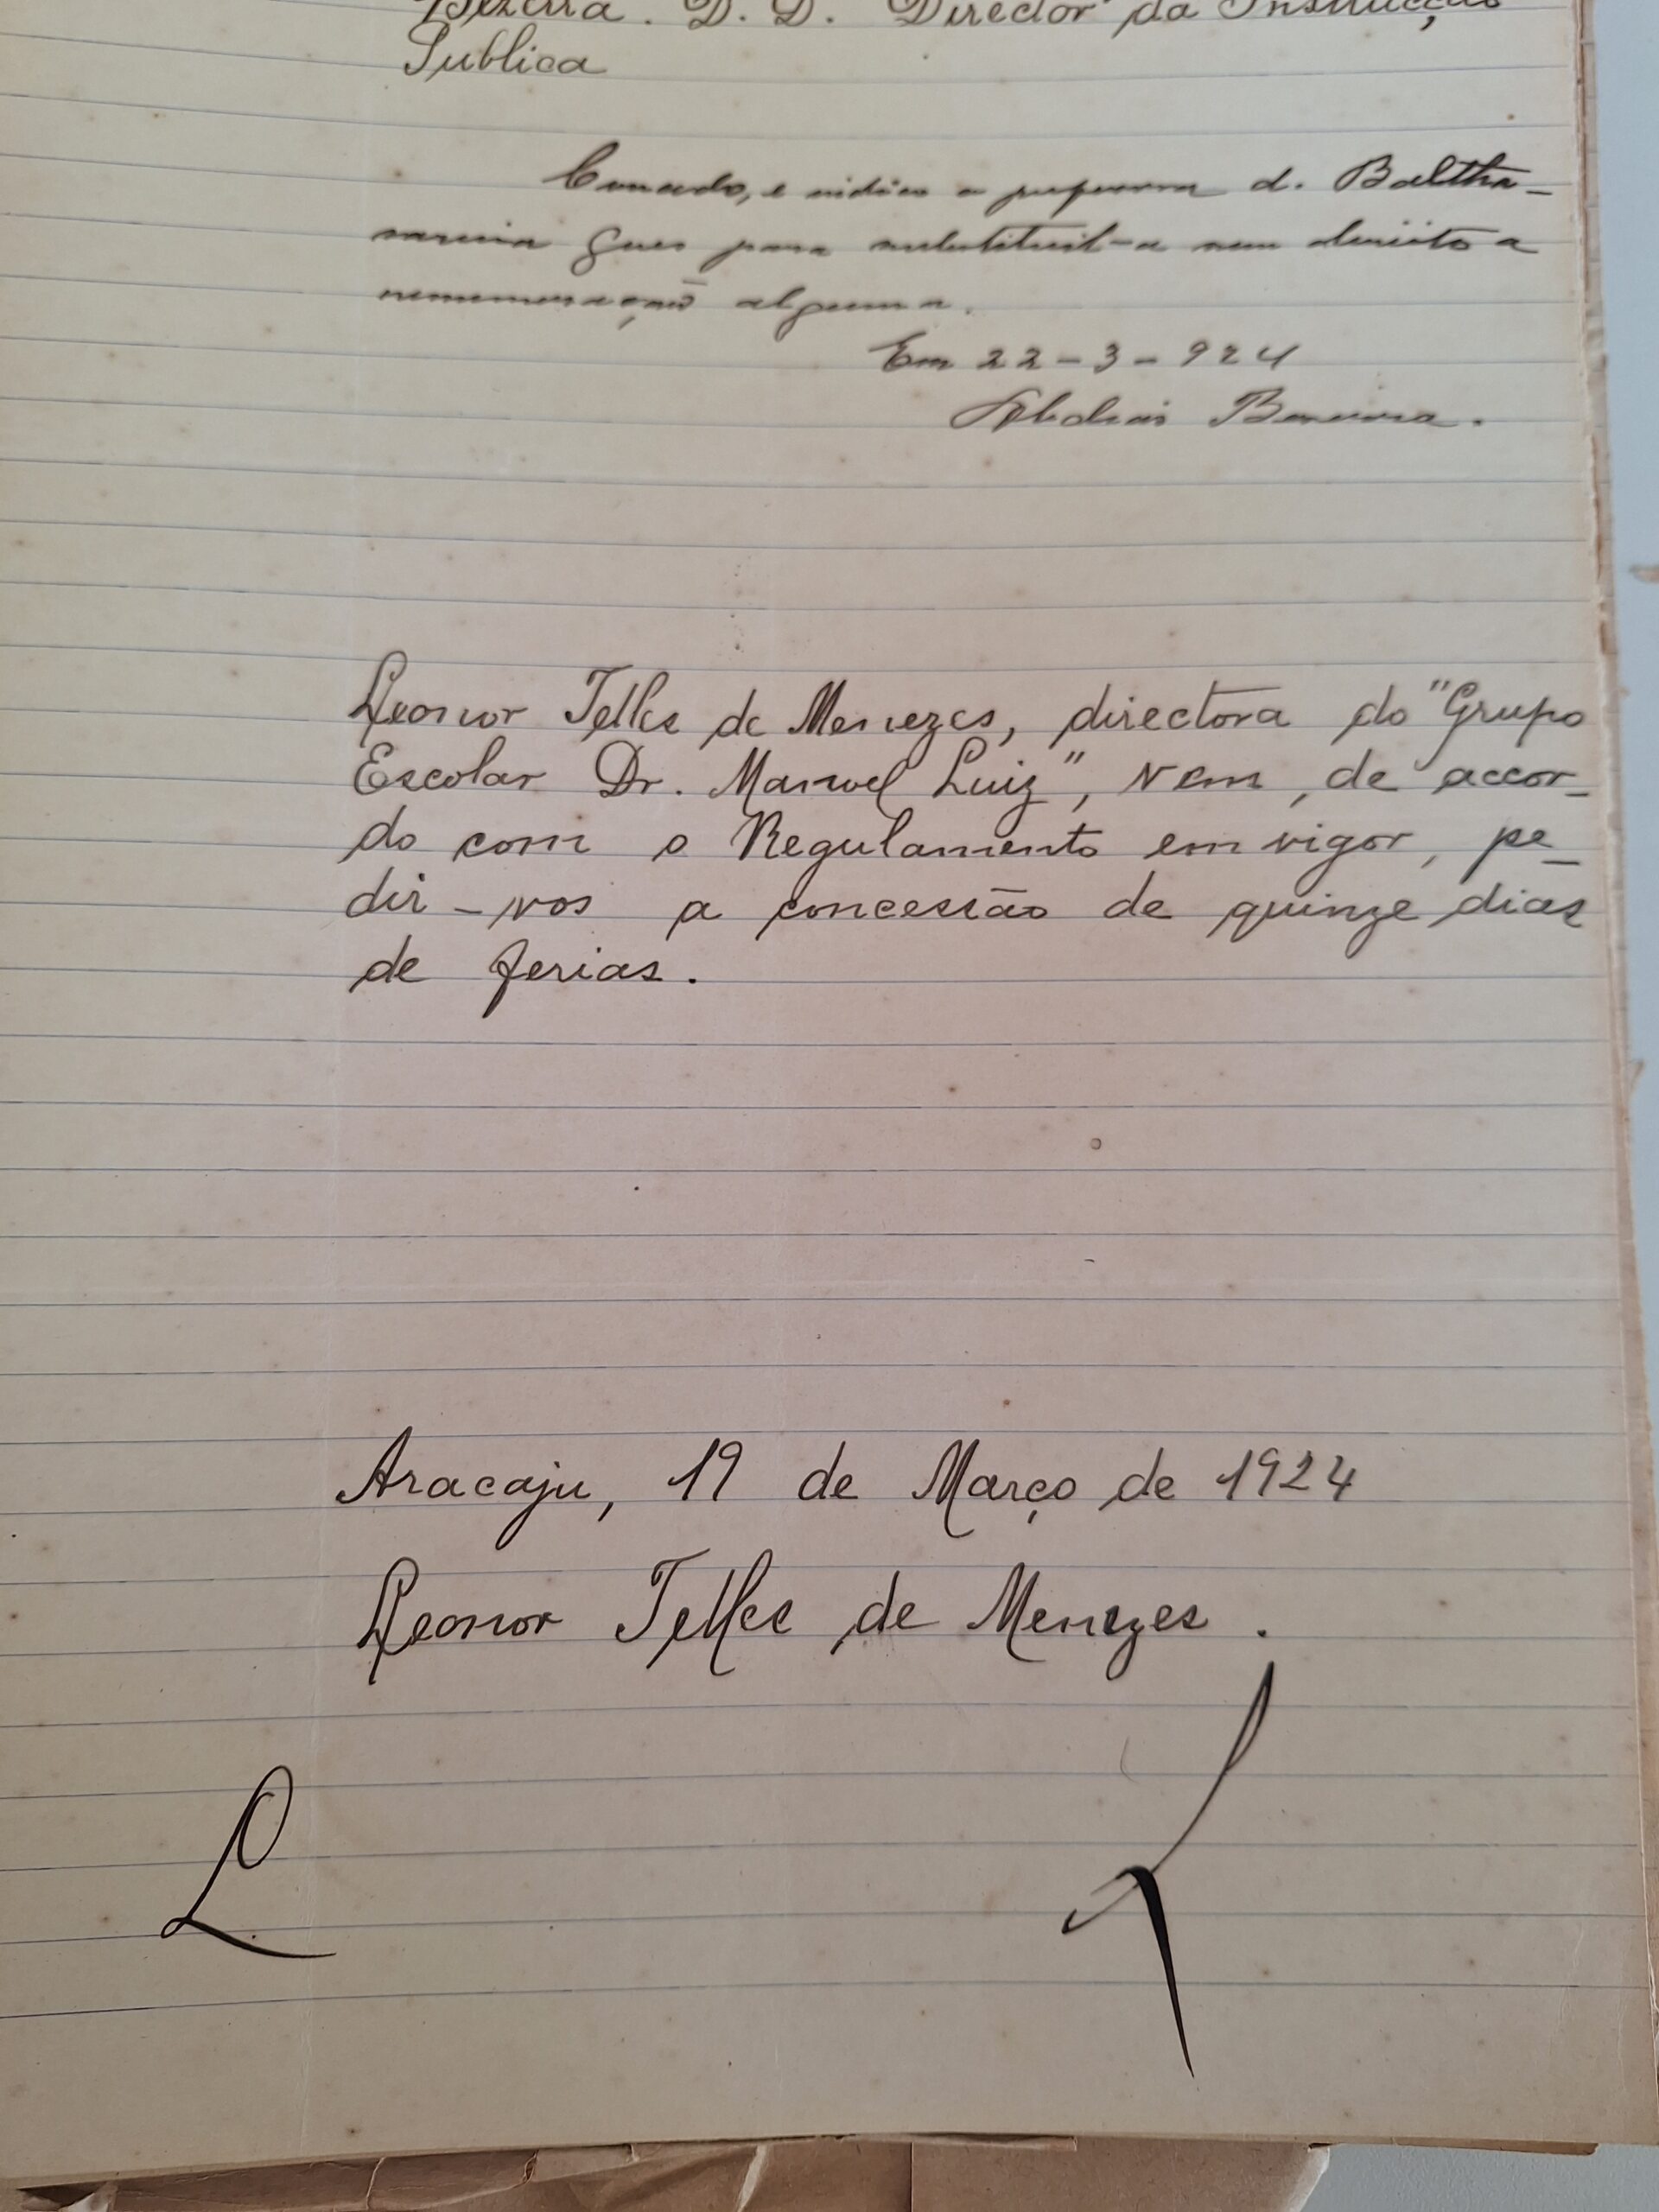 Bezerra. D. D. Director da Instrucção
Publica
Concedo, e indico a professora d. Baltha-
zarina Goes para substituil-a sem direito a
remuneração alguma.
Em 22-3-924
Abdias Bezerra.
Leonor Telles de Menezes, directora do "Grupo
Escolar Dr. Manoel Luiz", vem, de accor-
do com o Regulamento em vigor, pe-
dir-vos a concessão de quinze dias
de ferias.
Aracaju, 19 de Março de 1924
Leonor Telles de Menezes.